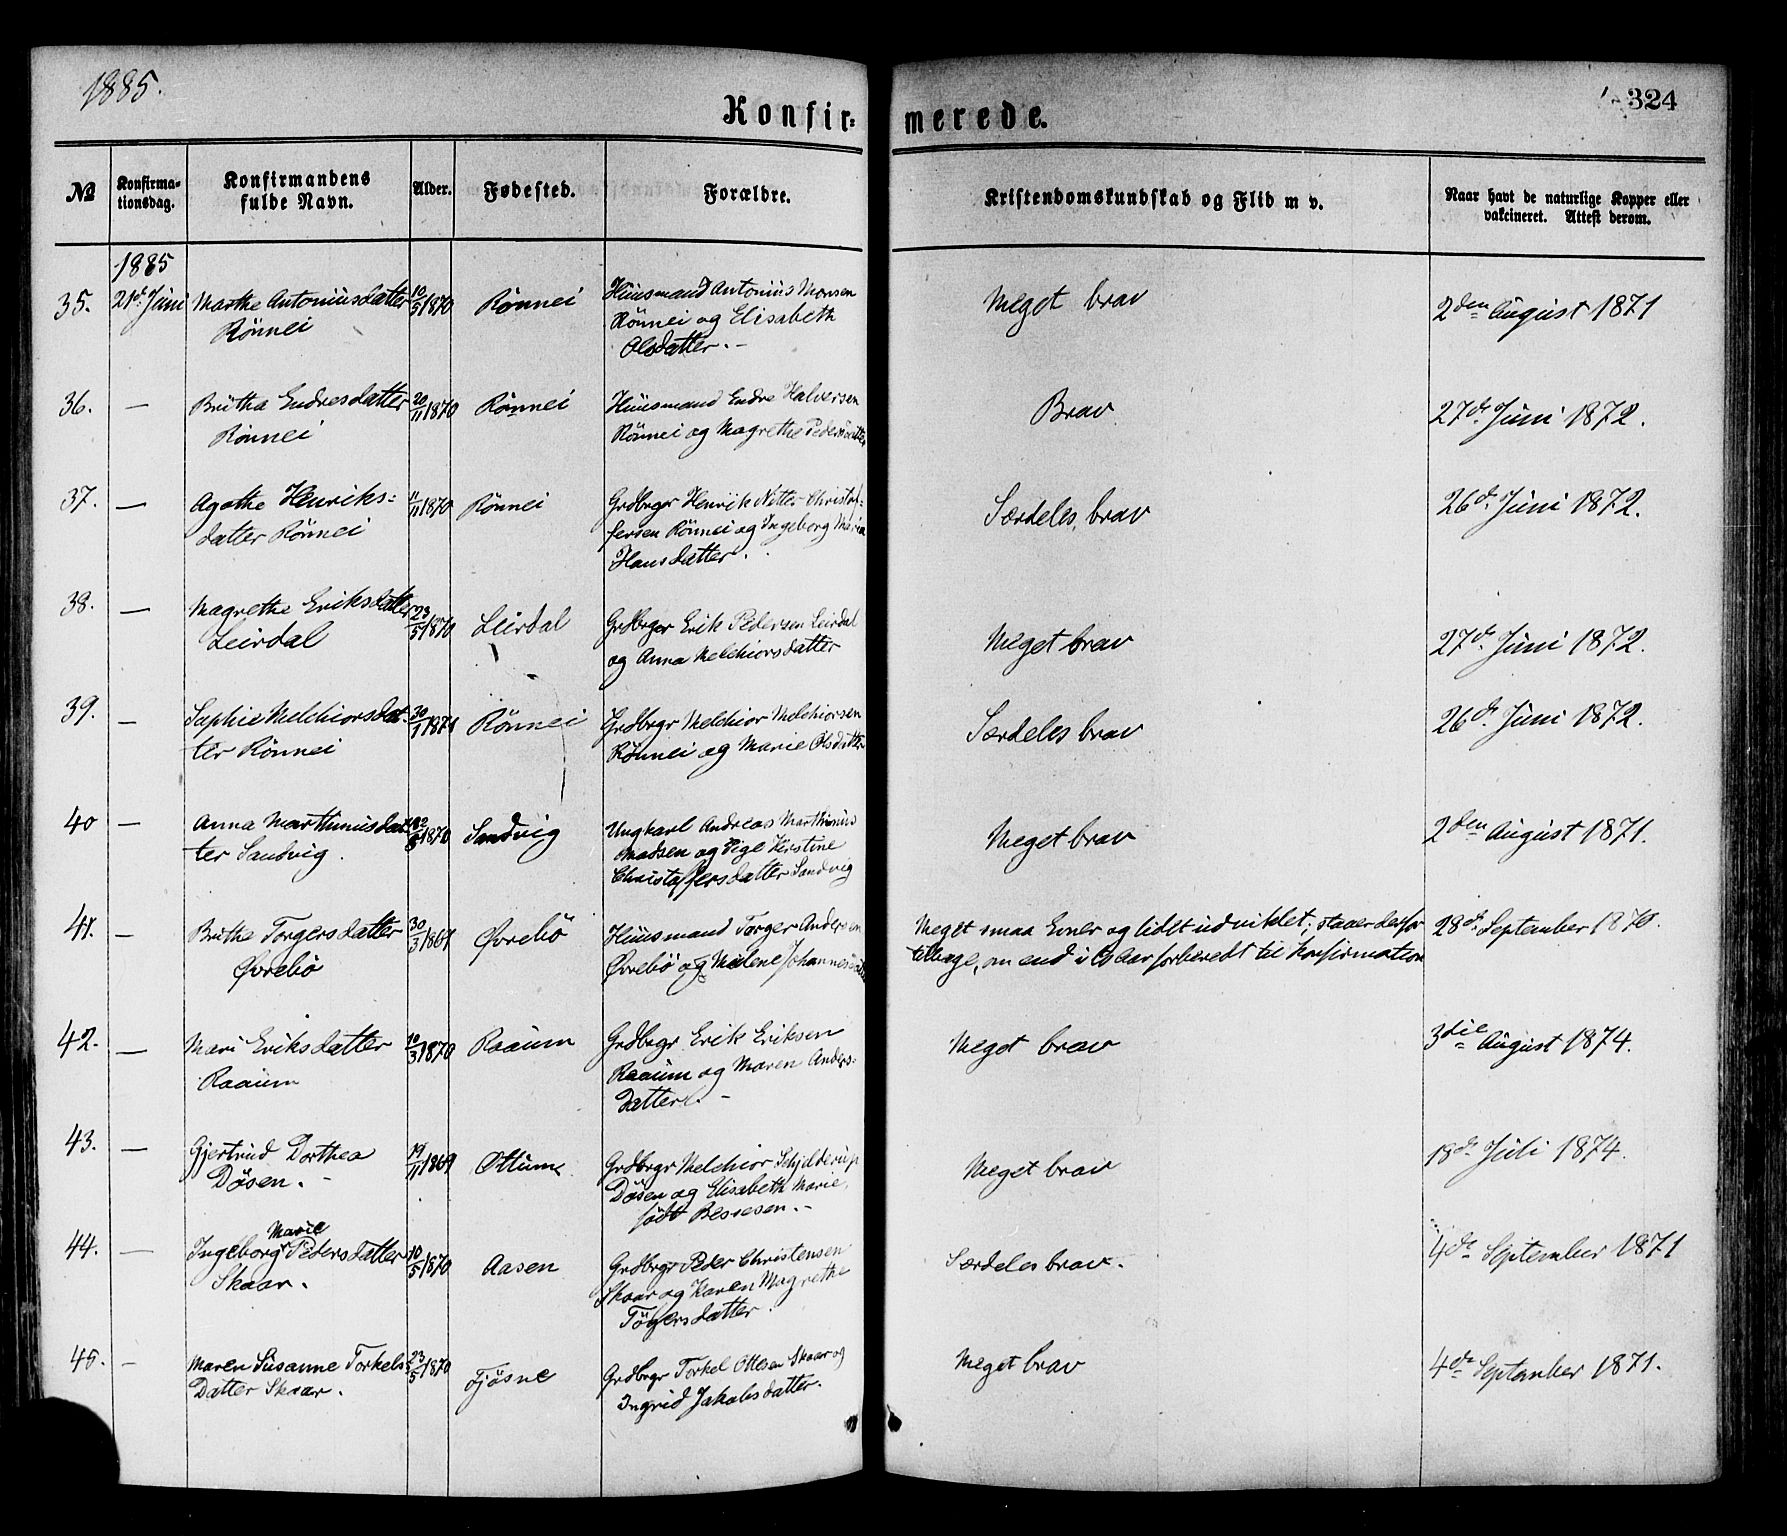 1885.
324
Konfir=
merede.
№
Konfirma-
tionsdag.
Konfirmandens
fulde Navn.
Alder.
Fødested.
Forældre.
Kristendomskundskab og Flid m v.
Naar havt de naturlige Kopper eller
vakcineret. Attest derom.
1885
35. 21de Juni Marthe Antoniusdatter 10/5 1870 Rönnei Huusmand Antonius Monsen Meget brav 2den August 1871
Rönnei Rönnei og Elisabeth
Olsdatter.-
36. — Brithe Endresdatter 20/11 1870 Rönnei Huusmand Endre Halversen Brav 27de Juni 1872.
Rönnei Rönnei og Magrethe Pedersdatter
37. — Agathe Henriks= 11/11 1870 Rönnei Grdbrgr Henrik Nitter Christof- Særdeles brav 26de Juni 1872.
datter Rönnei fersen Rönnei og Ingeborg Maria
Hansdatter.
38. — Magrethe Eriksdatter 23/5 1870 Leirdal Grdbrger Erik Pedersen Leirdal Meget brav 27de Juni 1872.
Leirdal og Anna Melchiorsdatter
39. — Sophie Melchiorsdat- 30/1 1871 Rönnei Grdbrgr Melchior Melchiorsen Særdeles brav 26de Juni 1872.
ter Rönnei Rönnei og Marie Olsdatter
40 — Anna Marthinusdat- 1870 Sandvig Ungkarl Andreas Marthinus Meget brav 2den August 1871.
ter Sandvig. Madsen og Pige Kirstine
Christoffersdatter Sandvig
41. — Brithe Torgersdatter 30/3 1869 Øvrebö Huusmand Torger Andersen Meget smaa Evner og lidet udviklet; staaer derfor 28de September 1870.
Øvrebö Øvrebö og Malene Johannesdatter tilbage, om end i Aar forberedt til Konfirmation
42. — Mari Eriksdatter 10/3 1870 Raaum Grdbrgr Erik Eriksen Meget brav 3die August 1874.
Raaum Raaum og Maren Anders=
datter.-
43. — Gjertrud Dorthea 19/11 1869 Ottum Grdbrgr Melchior Schjelderup Meget brav 18de Juli 1874.
Døsen.- Døsen og Elisabeth Marie,
født Bessesen.-
Marie
44. — Ingeborg Pedersdatter 10/5 1870 Aasen Grdbrgr Peder Christensen Særdeles brav. 4de September 1871
Skaar. Skaar og Karen Magrethe
Tögersdatter.
45. — Maren Susanne Torkels 23/5 1870 Fjøsne Grdbrgr Torkel Ottesen Skaar og Meget brav 4de September 1871.
Datter Skaar. Ingrid Jakobsdatter.